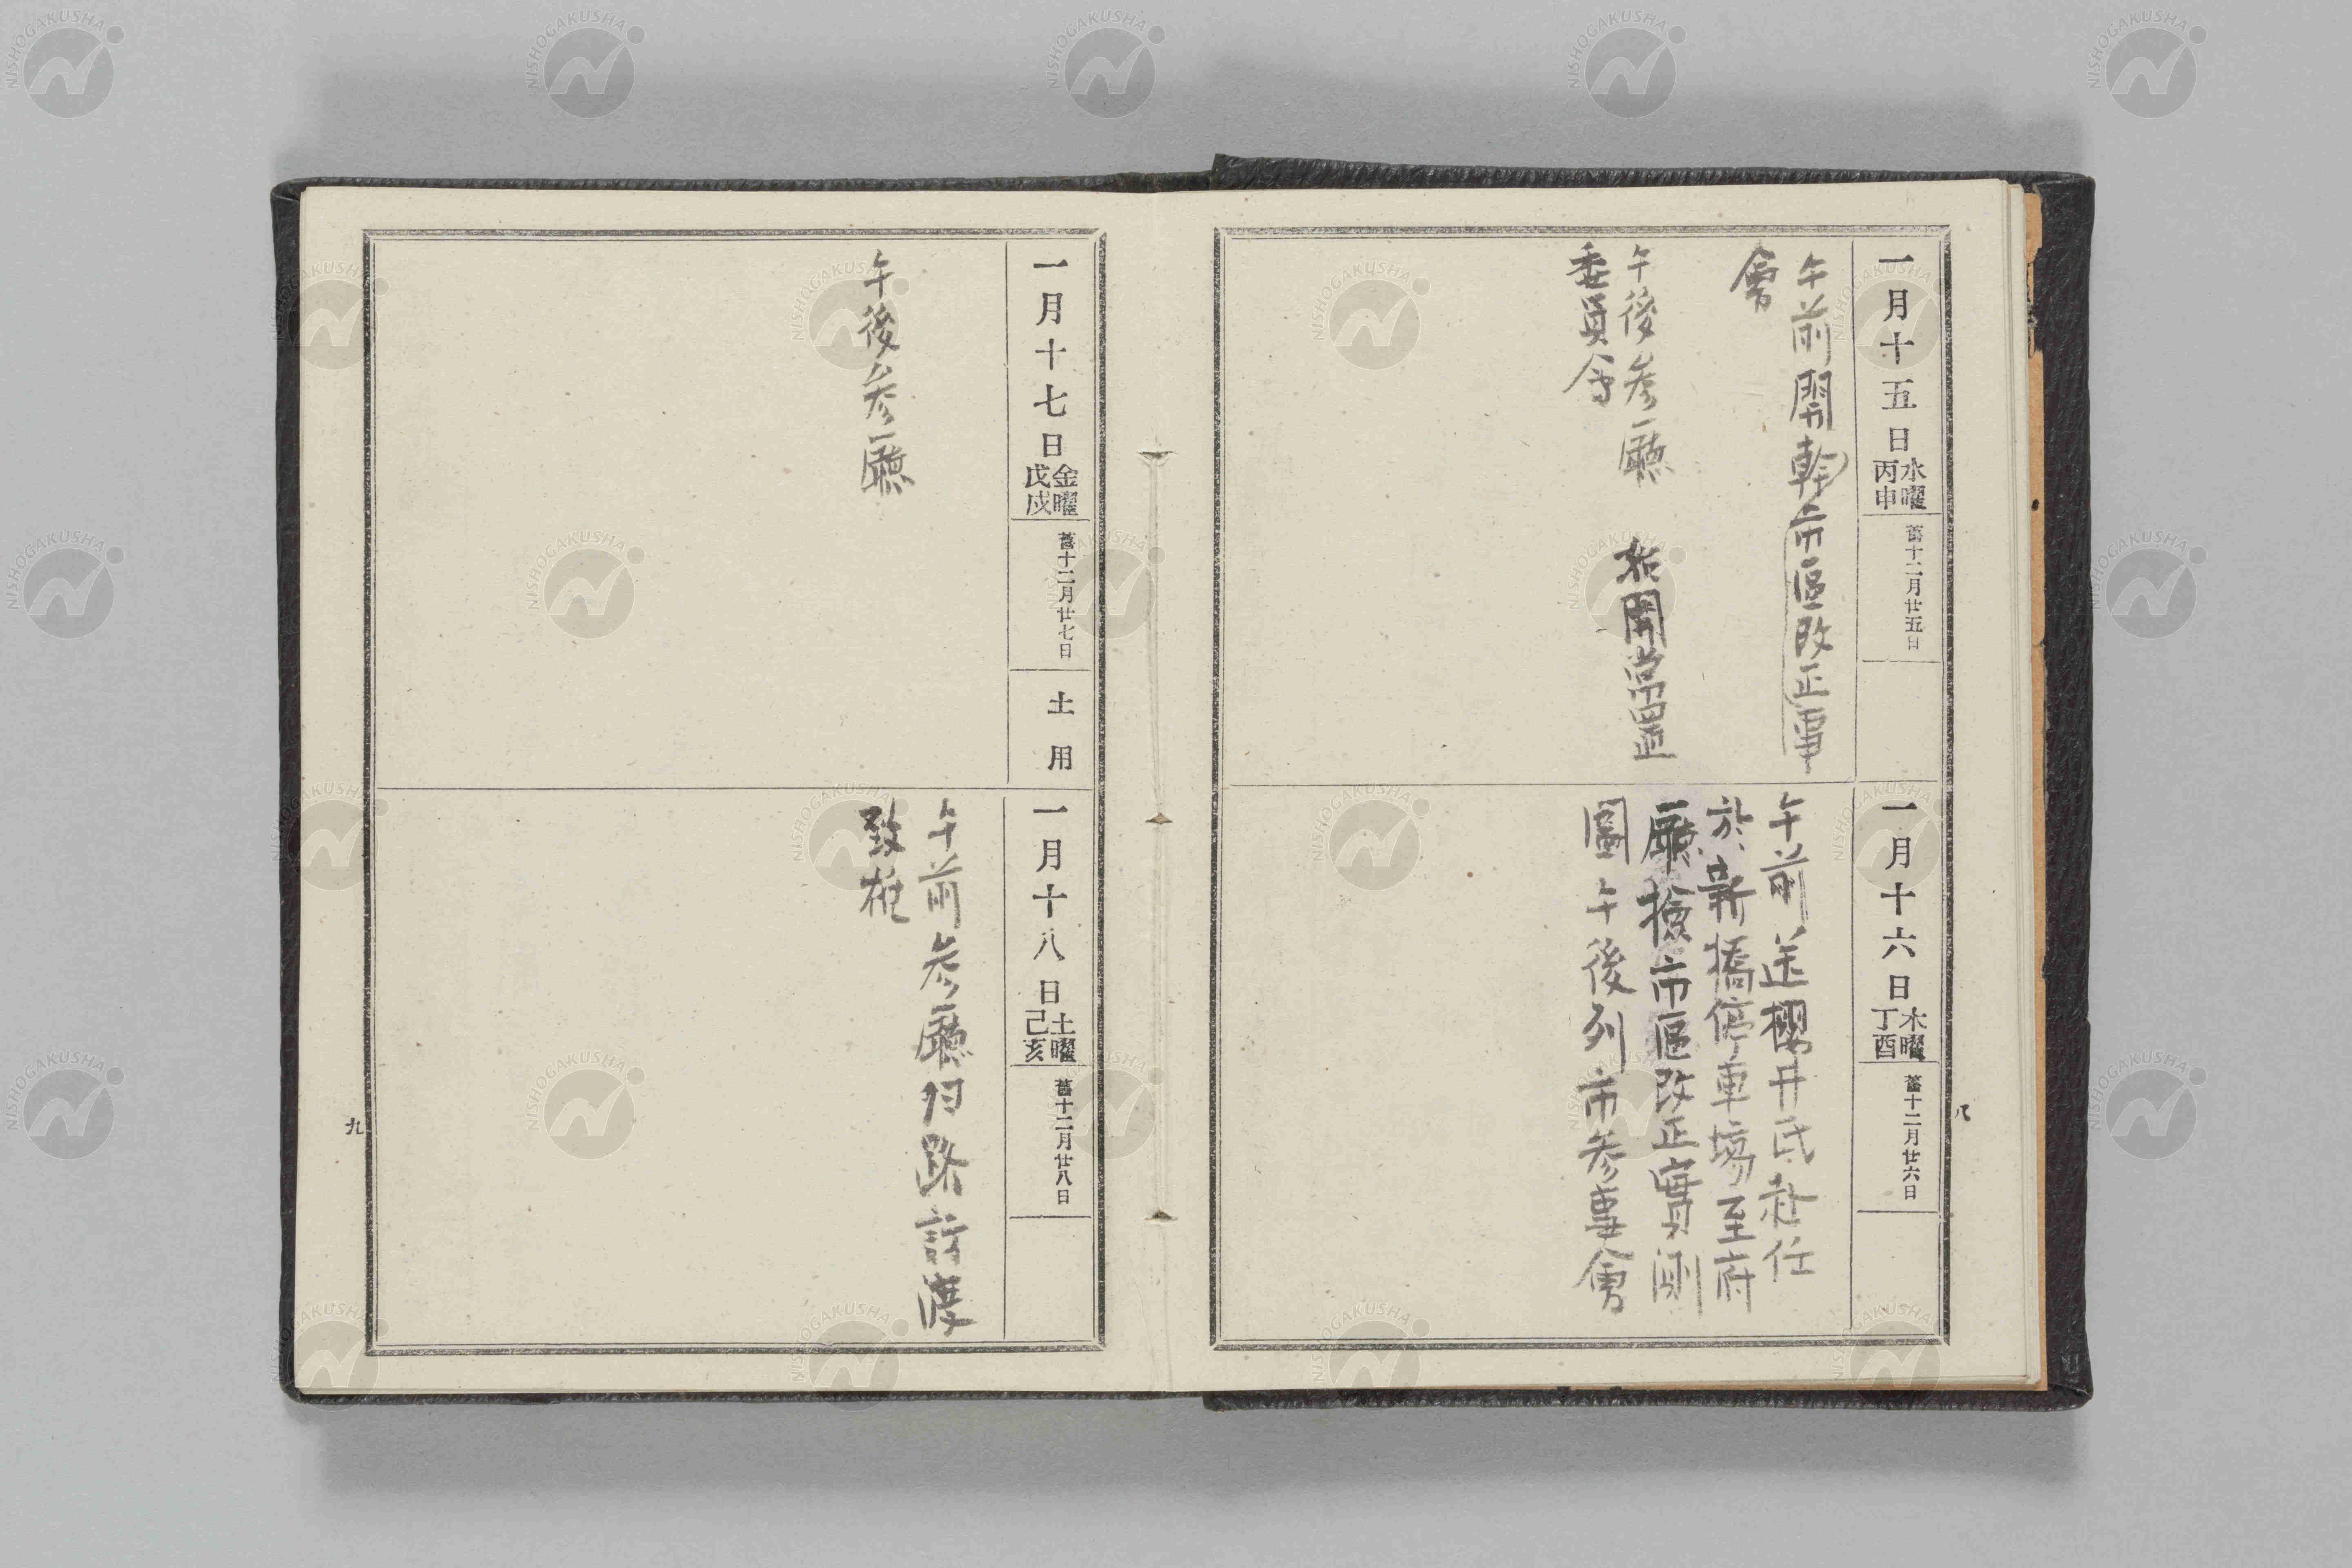 一月十五日 水曜 丙申 舊十二月廿五日
午前開幹市區改正事
會
午後参廳 於開常置
委員会
一月十六日 木曜 丁酉 舊十二月廿六日
午前送櫻井氏赴任
於新橋停車場至府
廳撿市區改正實測
圖午後列市参事會
八
一月十七日 金曜 戊戌 舊十二月廿七日 土用
午後参廳
一月十八日 土曜 己亥 舊十二月廿八日
午前参廳 路訪渡
九
NISHOGAKUSHA